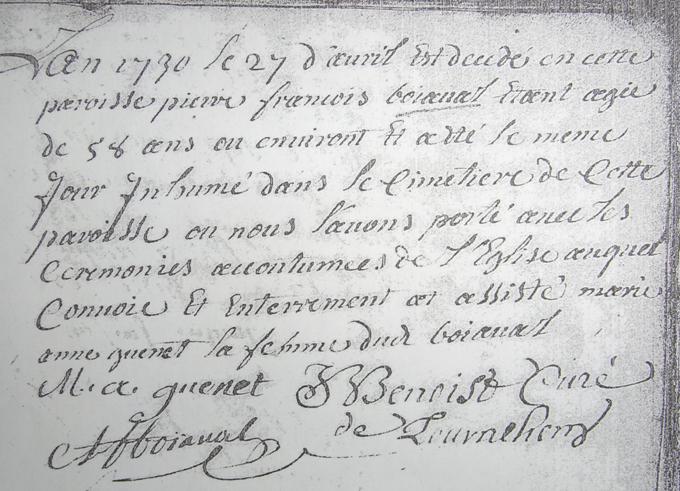 L'an 1730 le 27 d'avril Est decedé en cette
paroisse pierre françois boiaval Etant agie
de 58 ans ou environt Et a eté le meme
Jour Inhumé dans le Cimetiere de Cette
paroisse ou nous l'avons porté avec les
Ceremonies accoutumees de l'Eglise auquel
Convoie Et Enterrement at assisté marie
anne guenet la femme dud boiaval
M. a. guenet J Benoist Curé
boiaval de